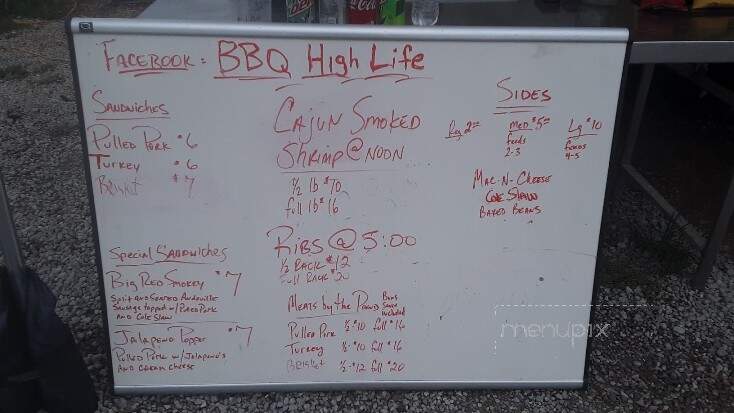 FACEBOOK: BBQ HIGH LIFE
SANDWICHES
PULLED PORK $6
TURKEY $6
BRISKET $7
SPECIAL SANDWICHES
BIG RED SMOKEY $7
SPLIT AND SEARED ANDOUILLE
SAUSAGE TOPPED W/ PULLED PORK
AND COLE SLAW
JALAPENO POPPER $7
PULLED PORK W/ JALAPENO'S
AND CREAM CHEESE
CAJUN SMOKED
SHRIMP @ NOON
½ lb $10
full lb $16
RIBS @ 5:00
½ RACK $12
full RACK $20
MEATS by THE POUND
Buns
Sauce
included
PULLED PORK ½ $10 full $16
TURKEY ½ $10 full $16
BRISKET ½ $12 full $20
SIDES
Reg 2.00
MED $5.00
feeds
2-3
Lg $10
feeds
4-5
MAC-N-CHEESE
COLE SLAW
BAKED BEANS
menupix